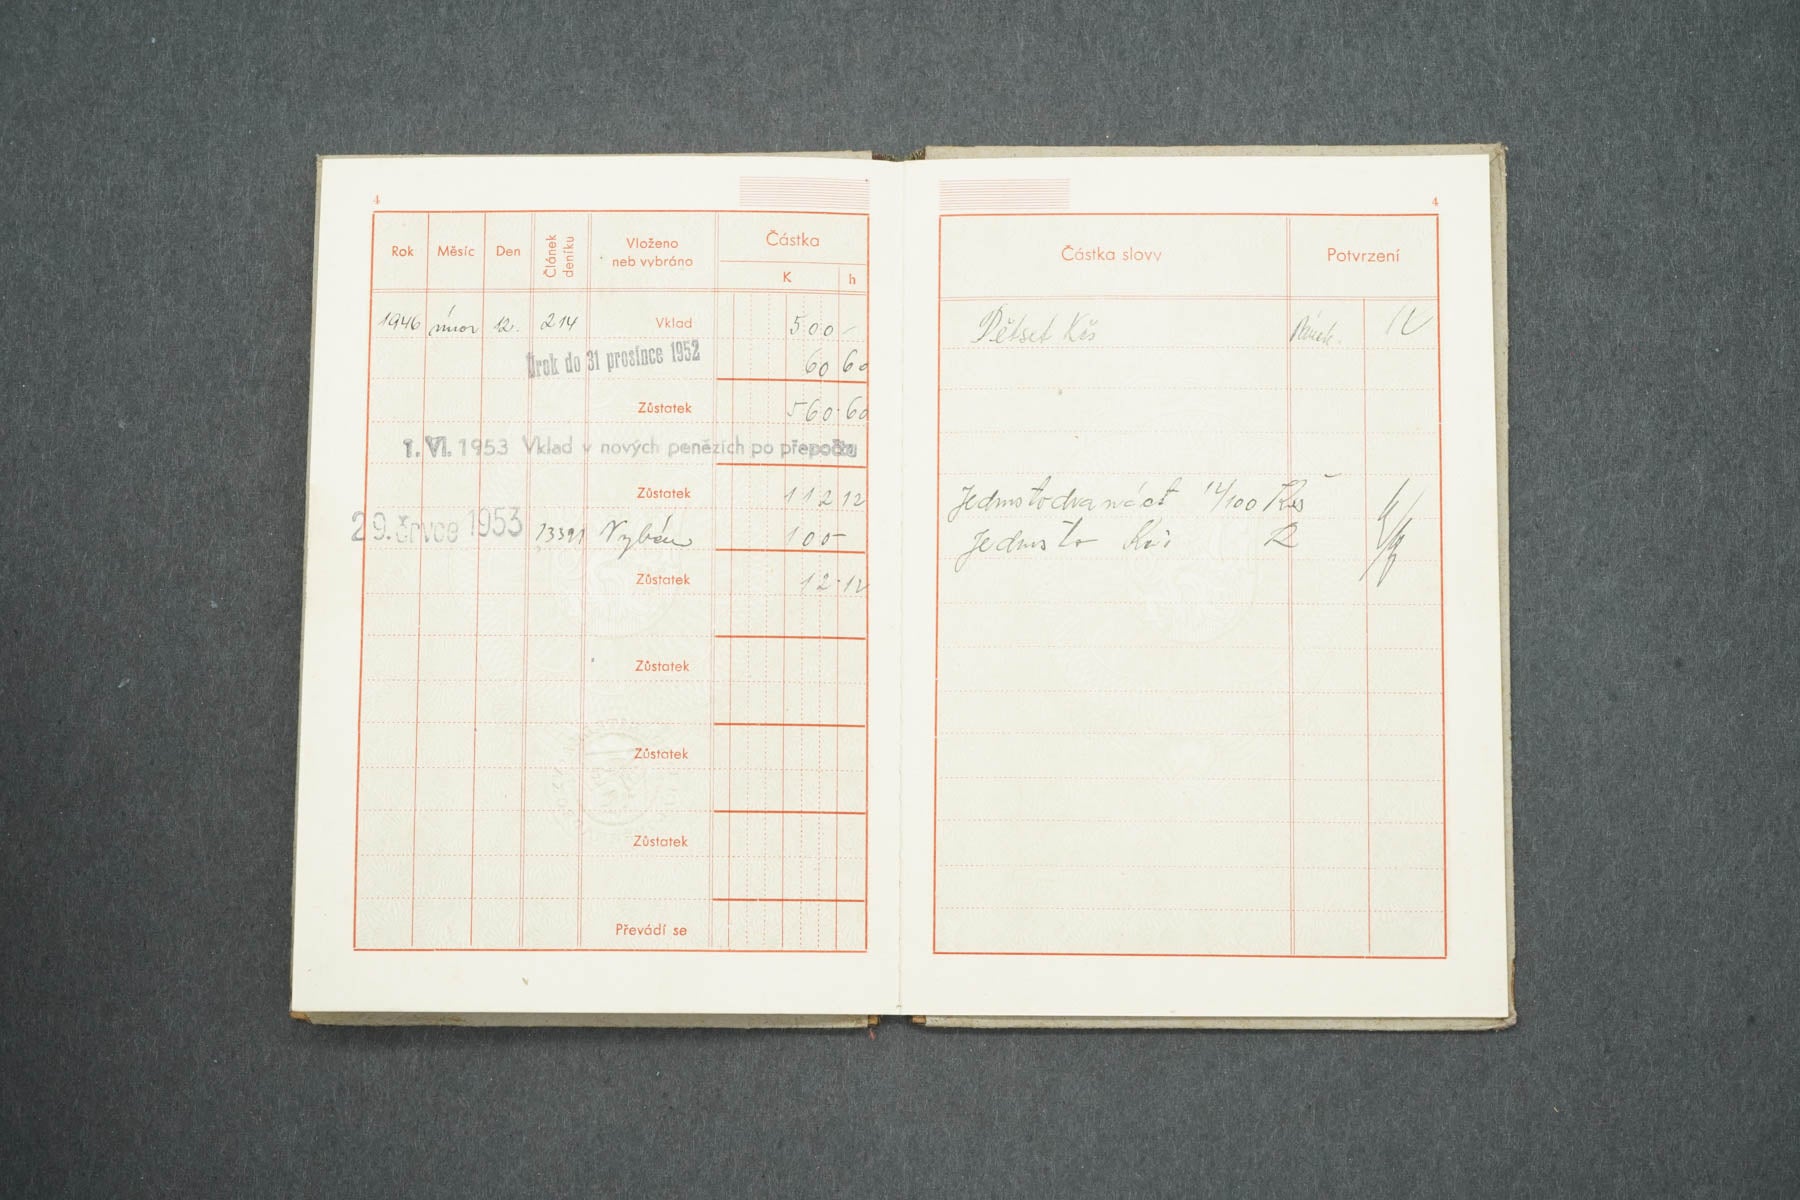 4
Rok Měsíc Den Článek deníku Vloženo neb vybráno Částka K h
1946 únor 12. 214 Vklad 500 –
Úrok do 31 prosince 1952 60 60
Zůstatek 560 · 60
1. VI. 1953 Vklad v nových penězích po přepočtu
Zůstatek 112 12
29. července 1953 13391 Vybráno 100 –
Zůstatek 12 · 12
Zůstatek
Zůstatek
Zůstatek
Převádí se
4
Částka slovy Potvrzení
Pětset Kčs
Jednostodvanáct 12/100 Kčs
Jednosto Kčs